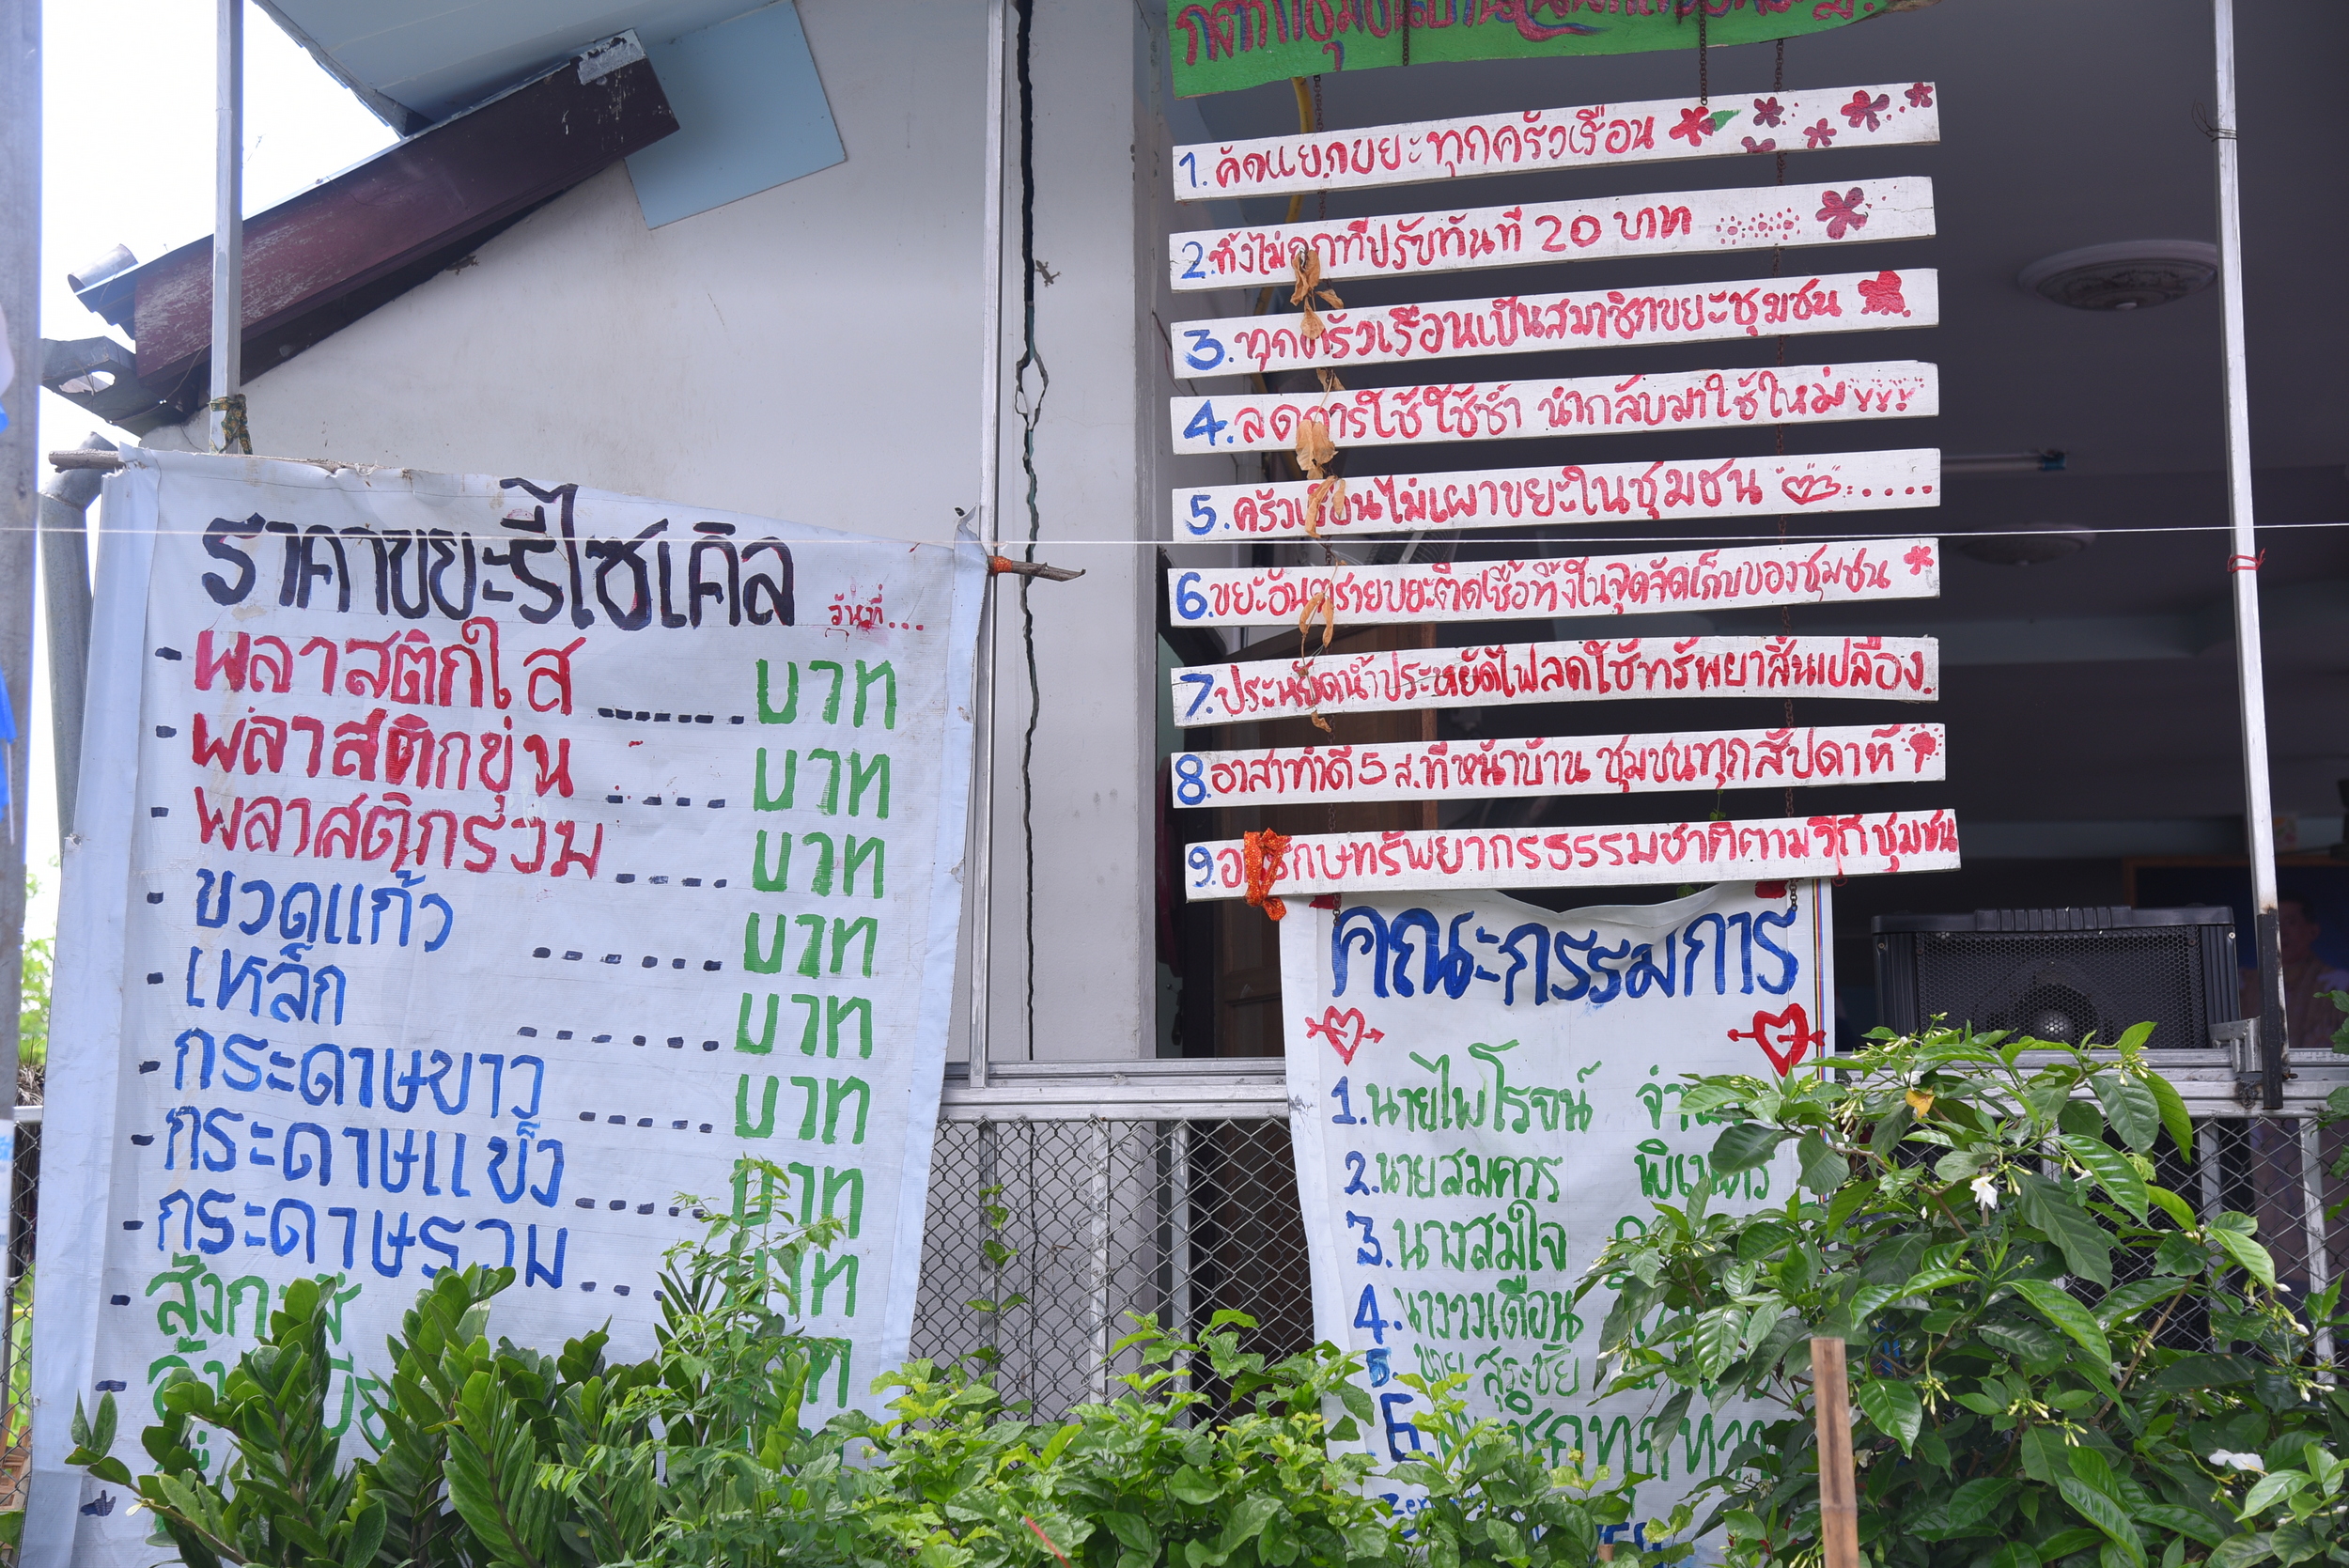 ราคาขยะรีไซเคิล วันที่...
- พลาสติกใส ...... บาท
- พลาสติกขุ่น .... บาท
- พลาสติกรวม .... บาท
- ขวดแก้ว ...... บาท
- เหล็ก ...... บาท
- กระดาษขาว ..... บาท
- กระดาษแข็ง ..... บาท
- กระดาษรวม .... บาท
1. คัดแยกขยะทุกครัวเรือน
2. ทิ้งไม่ถูกที่ปรับทันที 20 บาท
3. ทุกครัวเรือนเป็นสมาชิกขยะชุมชน
4. ลดการใช้ ใช้ซ้ำ นำกลับมาใช้ใหม่
5. ครัวเรือนไม่เผาขยะในชุมชน
6. ขยะอันตรายขยะติดเชื้อทิ้งในจุดจัดเก็บของชุมชน
7. ประหยัดน้ำประหยัดไฟลดใช้ทรัพยาสิ้นเปลือง.
8. อาสาทำดี 5 ส.ที่หน้าบ้าน ชุมชนทุกสัปดาห์
9. อนุรักษทรัพยากรธรรมชาติตามวิถีชุมชน
คณะกรรมการ
1. นายไพโรจน์
2. นายสมควร
3. นางสมใจ
4. นางวงเดือน
5. นาย สุระชัย
6.